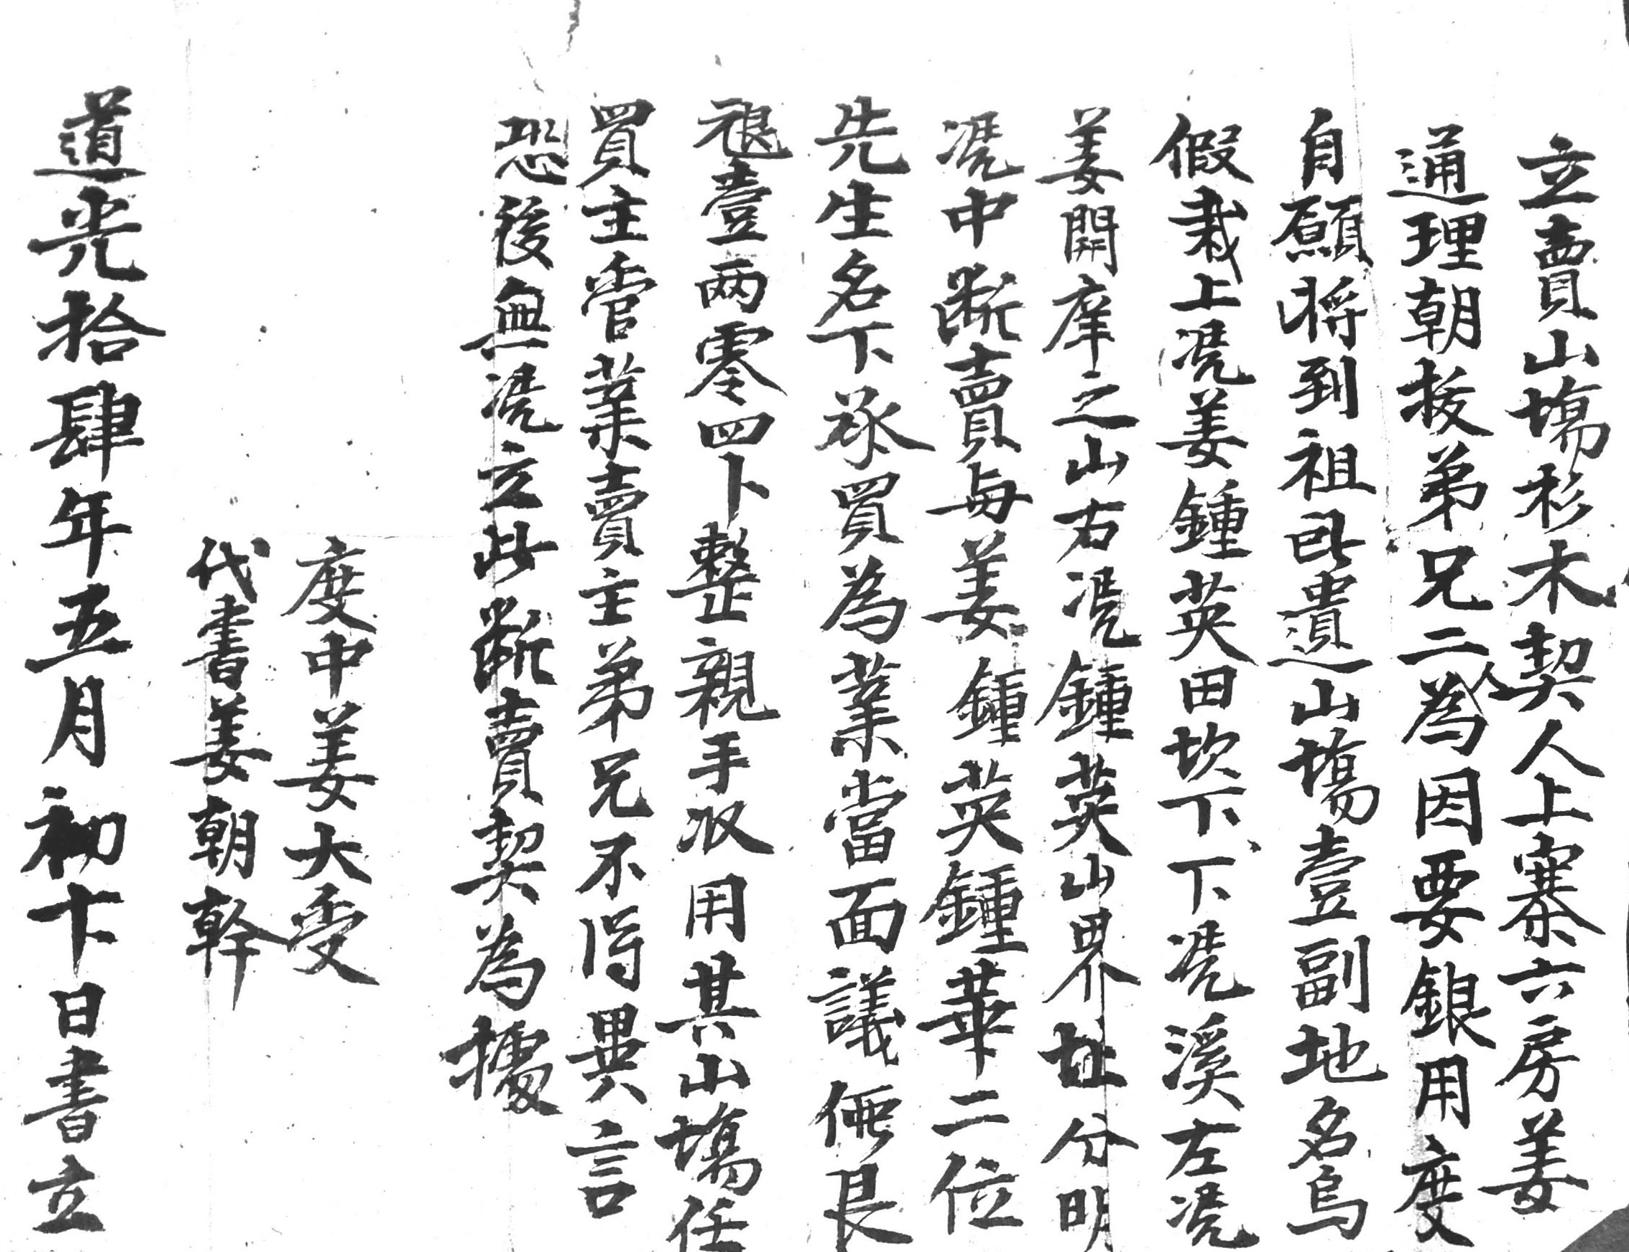 立賣山塲杉木契人上寨六房姜
通理朝拔弟兄二人為因要銀用度
自願將到祖昆遺山塲壹副地名烏
假栽上凴姜鍾英田坎下下凴溪左凴
姜開庠之山右凴鍾英山界址分明
凴中断賣与姜鍾英鍾華二位
先生名下承買為業當面議價艮
壹两零四卜整親手収用其山塲任
買主管業賣主弟兄不淂異言
恐後無凴立此断賣契為據
度中姜大受
代書姜朝幹
道光拾肆年五月初十日書立